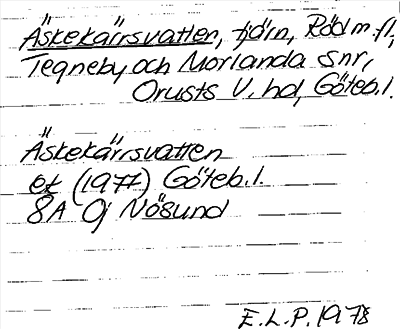 Äskekärrsvatten, tjärn, Röd m.fl.,
Tegneby och Morlanda snr,
Orusts V. hd, Göteb. l.
Äskekärrsvatten
ek (1977) Göteb. l.
8A 0j Nösund
E. L. P. 1978